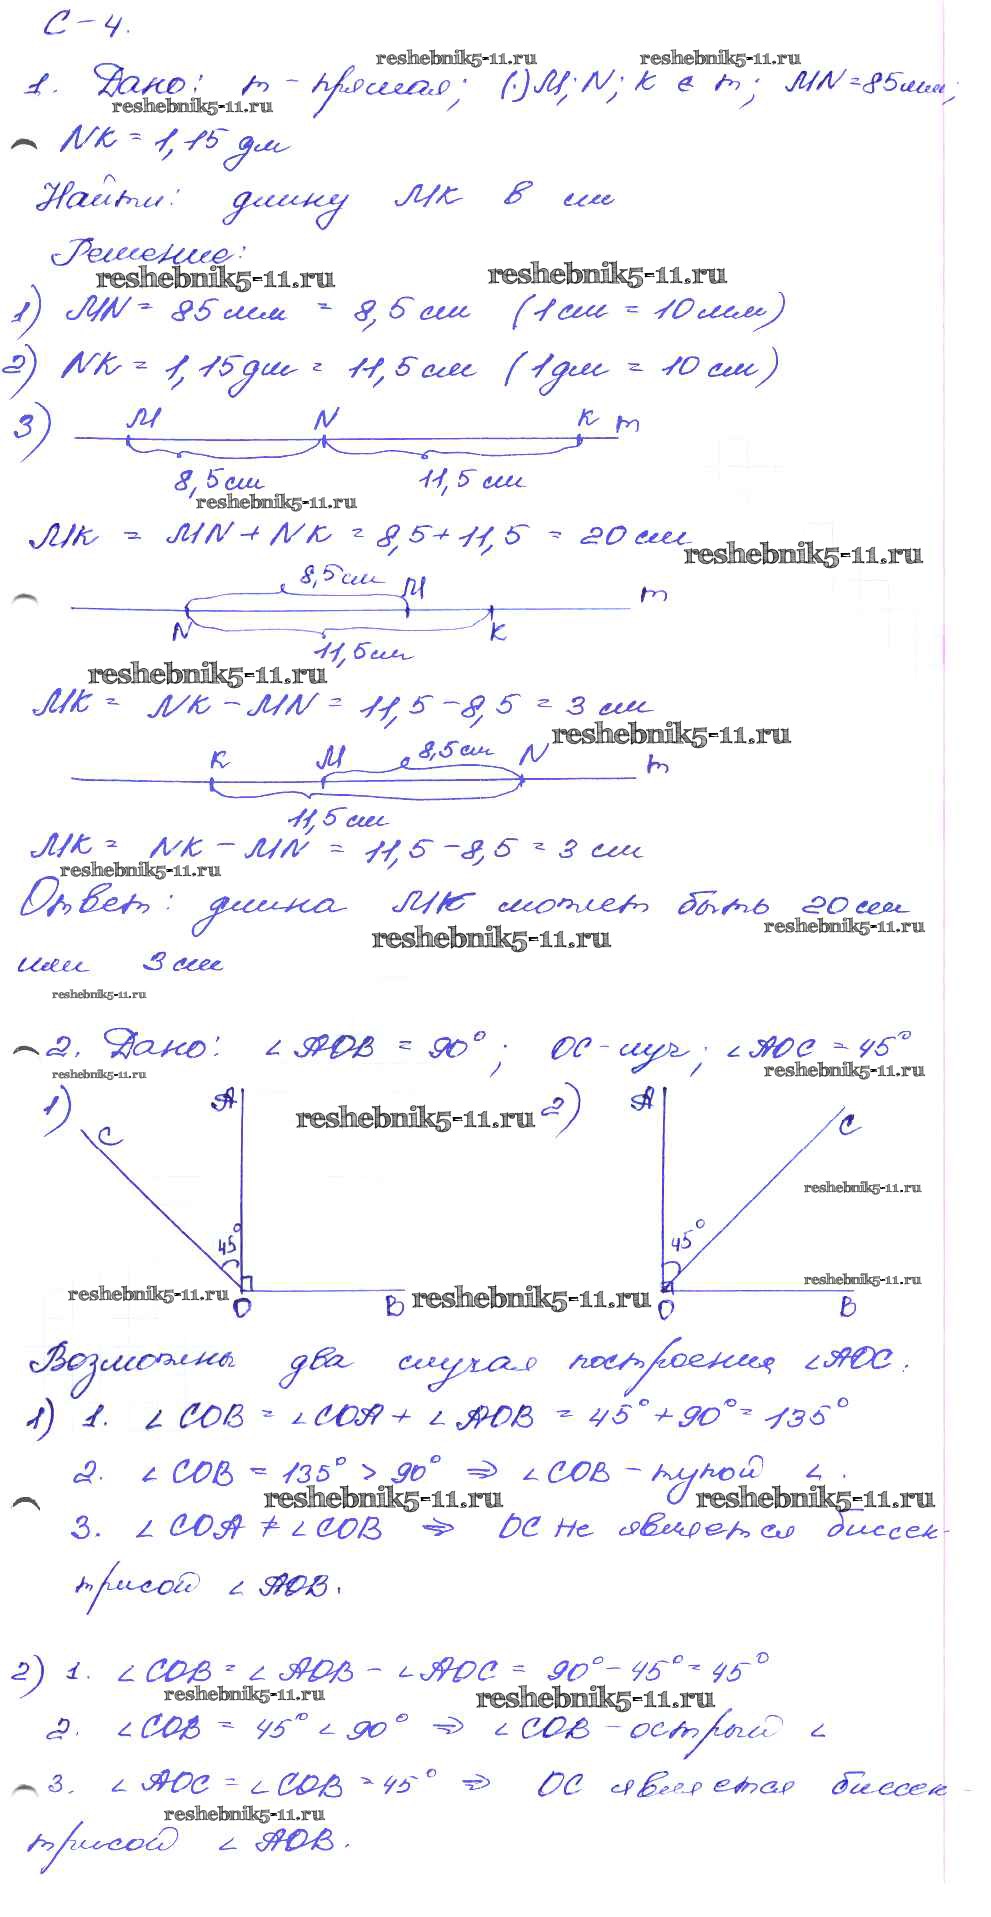 С-4.
reshebnik5-11.ru reshebnik5-11.ru
1. Дано: m - прямая; (·) M; N; K ∈ m; MN = 85мм;
reshebnik5-11.ru
NK = 1,15 дм
Найти: длину MK в см
Решение:
reshebnik5-11.ru reshebnik5-11.ru
1) MN = 85 мм = 8,5 см (1см = 10мм)
2) NK = 1,15дм = 11,5 см (1дм = 10 см)
3) M N K m
8,5см 11,5 см
reshebnik5-11.ru
MK = MN + NK = 8,5 + 11,5 = 20 см
reshebnik5-11.ru
8,5см M m
N K
11,5см
reshebnik5-11.ru
MK = NK - MN = 11,5 - 8,5 = 3 см
reshebnik5-11.ru
K M 8,5см N m
11,5 см
MK = NK - MN = 11,5 - 8,5 = 3 см
reshebnik5-11.ru
Ответ: длина MK может быть 20см
reshebnik5-11.ru reshebnik5-11.ru
или 3 см
reshebnik5-11.ru
2. Дано: ∠AOB = 90°; OC - луч; ∠AOC = 45°
reshebnik5-11.ru reshebnik5-11.ru
1) A reshebnik5-11.ru 2) A
C C
reshebnik5-11.ru
45° 45°
reshebnik5-11.ru reshebnik5-11.ru reshebnik5-11.ru
O B O B
Возможны два случая построения ∠AOC.
1) 1. ∠COB = ∠COA + ∠AOB = 45° + 90° = 135°
2. ∠COB = 135° > 90° ⇒ ∠COB - тупой ∠.
reshebnik5-11.ru reshebnik5-11.ru
3. ∠COA ≠ ∠COB ⇒ OC не является биссек-
трисой ∠AOB.
2) 1. ∠COB = ∠AOB - ∠AOC = 90° - 45° = 45°
reshebnik5-11.ru reshebnik5-11.ru
2. ∠COB = 45° < 90° ⇒ ∠COB - острый ∠
3. ∠AOC = ∠COB = 45° ⇒ OC является биссек-
reshebnik5-11.ru
трисой ∠AOB.